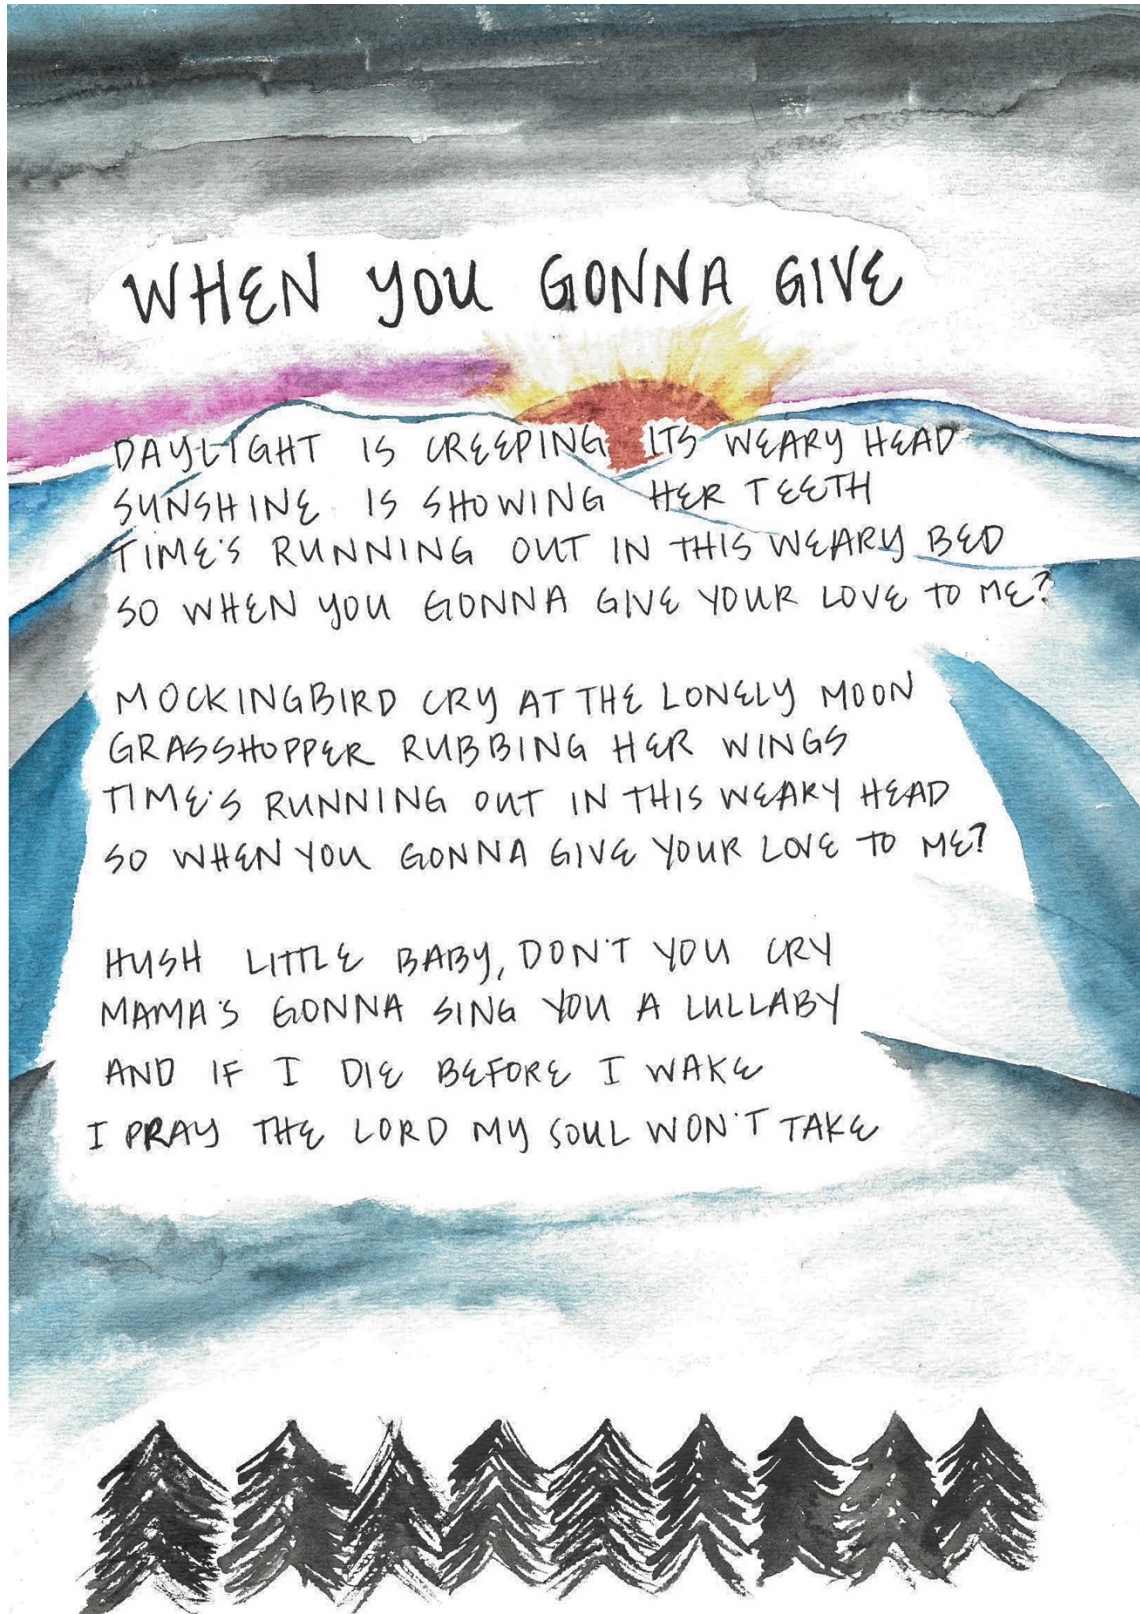 WHEN YOU GONNA GIVE
DAYLIGHT IS CREEPING ITS WEARY HEAD
SUNSHINE IS SHOWING HER TEETH
TIME'S RUNNING OUT IN THIS WEARY BED
SO WHEN YOU GONNA GIVE YOUR LOVE TO ME?
MOCKINGBIRD CRY AT THE LONELY MOON
GRASSHOPPER RUBBING HER WINGS
TIME'S RUNNING OUT IN THIS WEARY HEAD
SO WHEN YOU GONNA GIVE YOUR LOVE TO ME?
HUSH LITTLE BABY, DON'T YOU CRY
MAMA'S GONNA SING YOU A LULLABY
AND IF I DIE BEFORE I WAKE
I PRAY THE LORD MY SOUL WON'T TAKE